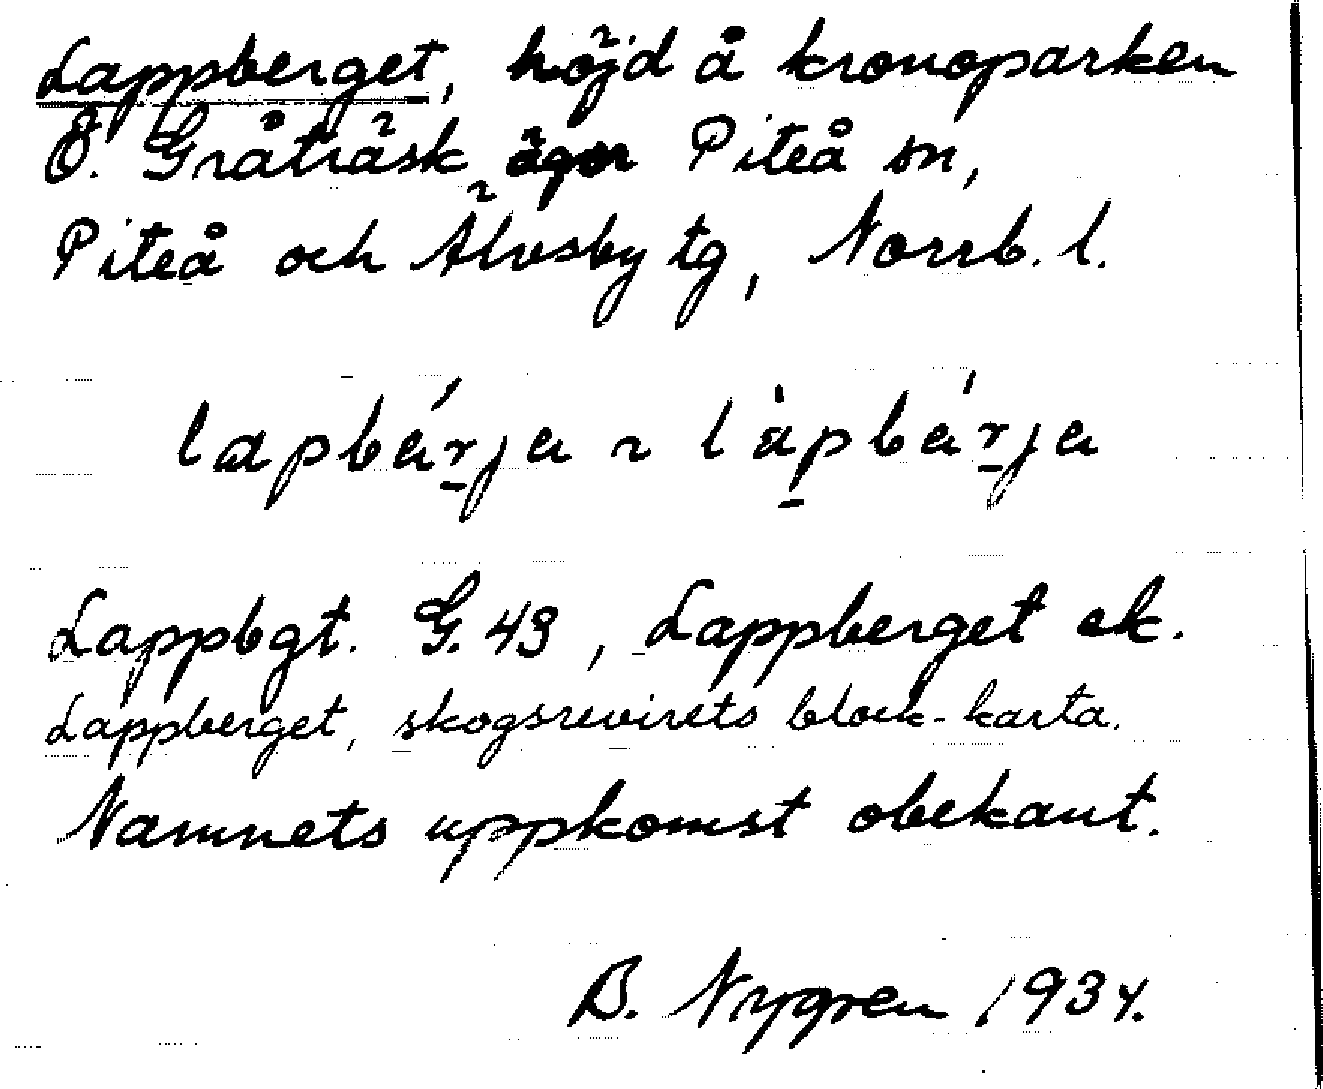 Lappberget, höjd å kronoparken
Ö. Gråträsk ägor Piteå sn,
Piteå och Älvsby tg, Norrb. l.
lapbárja ~ làpbárja
Lappbgt. G. 43, Lappberget ek.
Lappberget, skogsrevirets block-karta.
Namnets uppkomst obekant.
B. Nygren 1934.